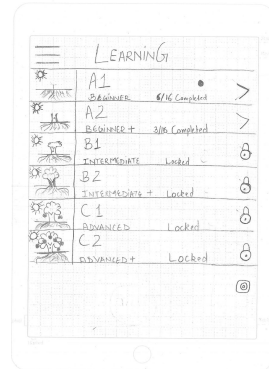 LEARNING
A1
BEGINNER 6/16 Completed
A2
BEGINNER + 3/16 Completed
B1
INTERMEDIATE Locked
B2
INTERMEDIATE + Locked
C1
ADVANCED Locked
C2
ADVANCED + Locked